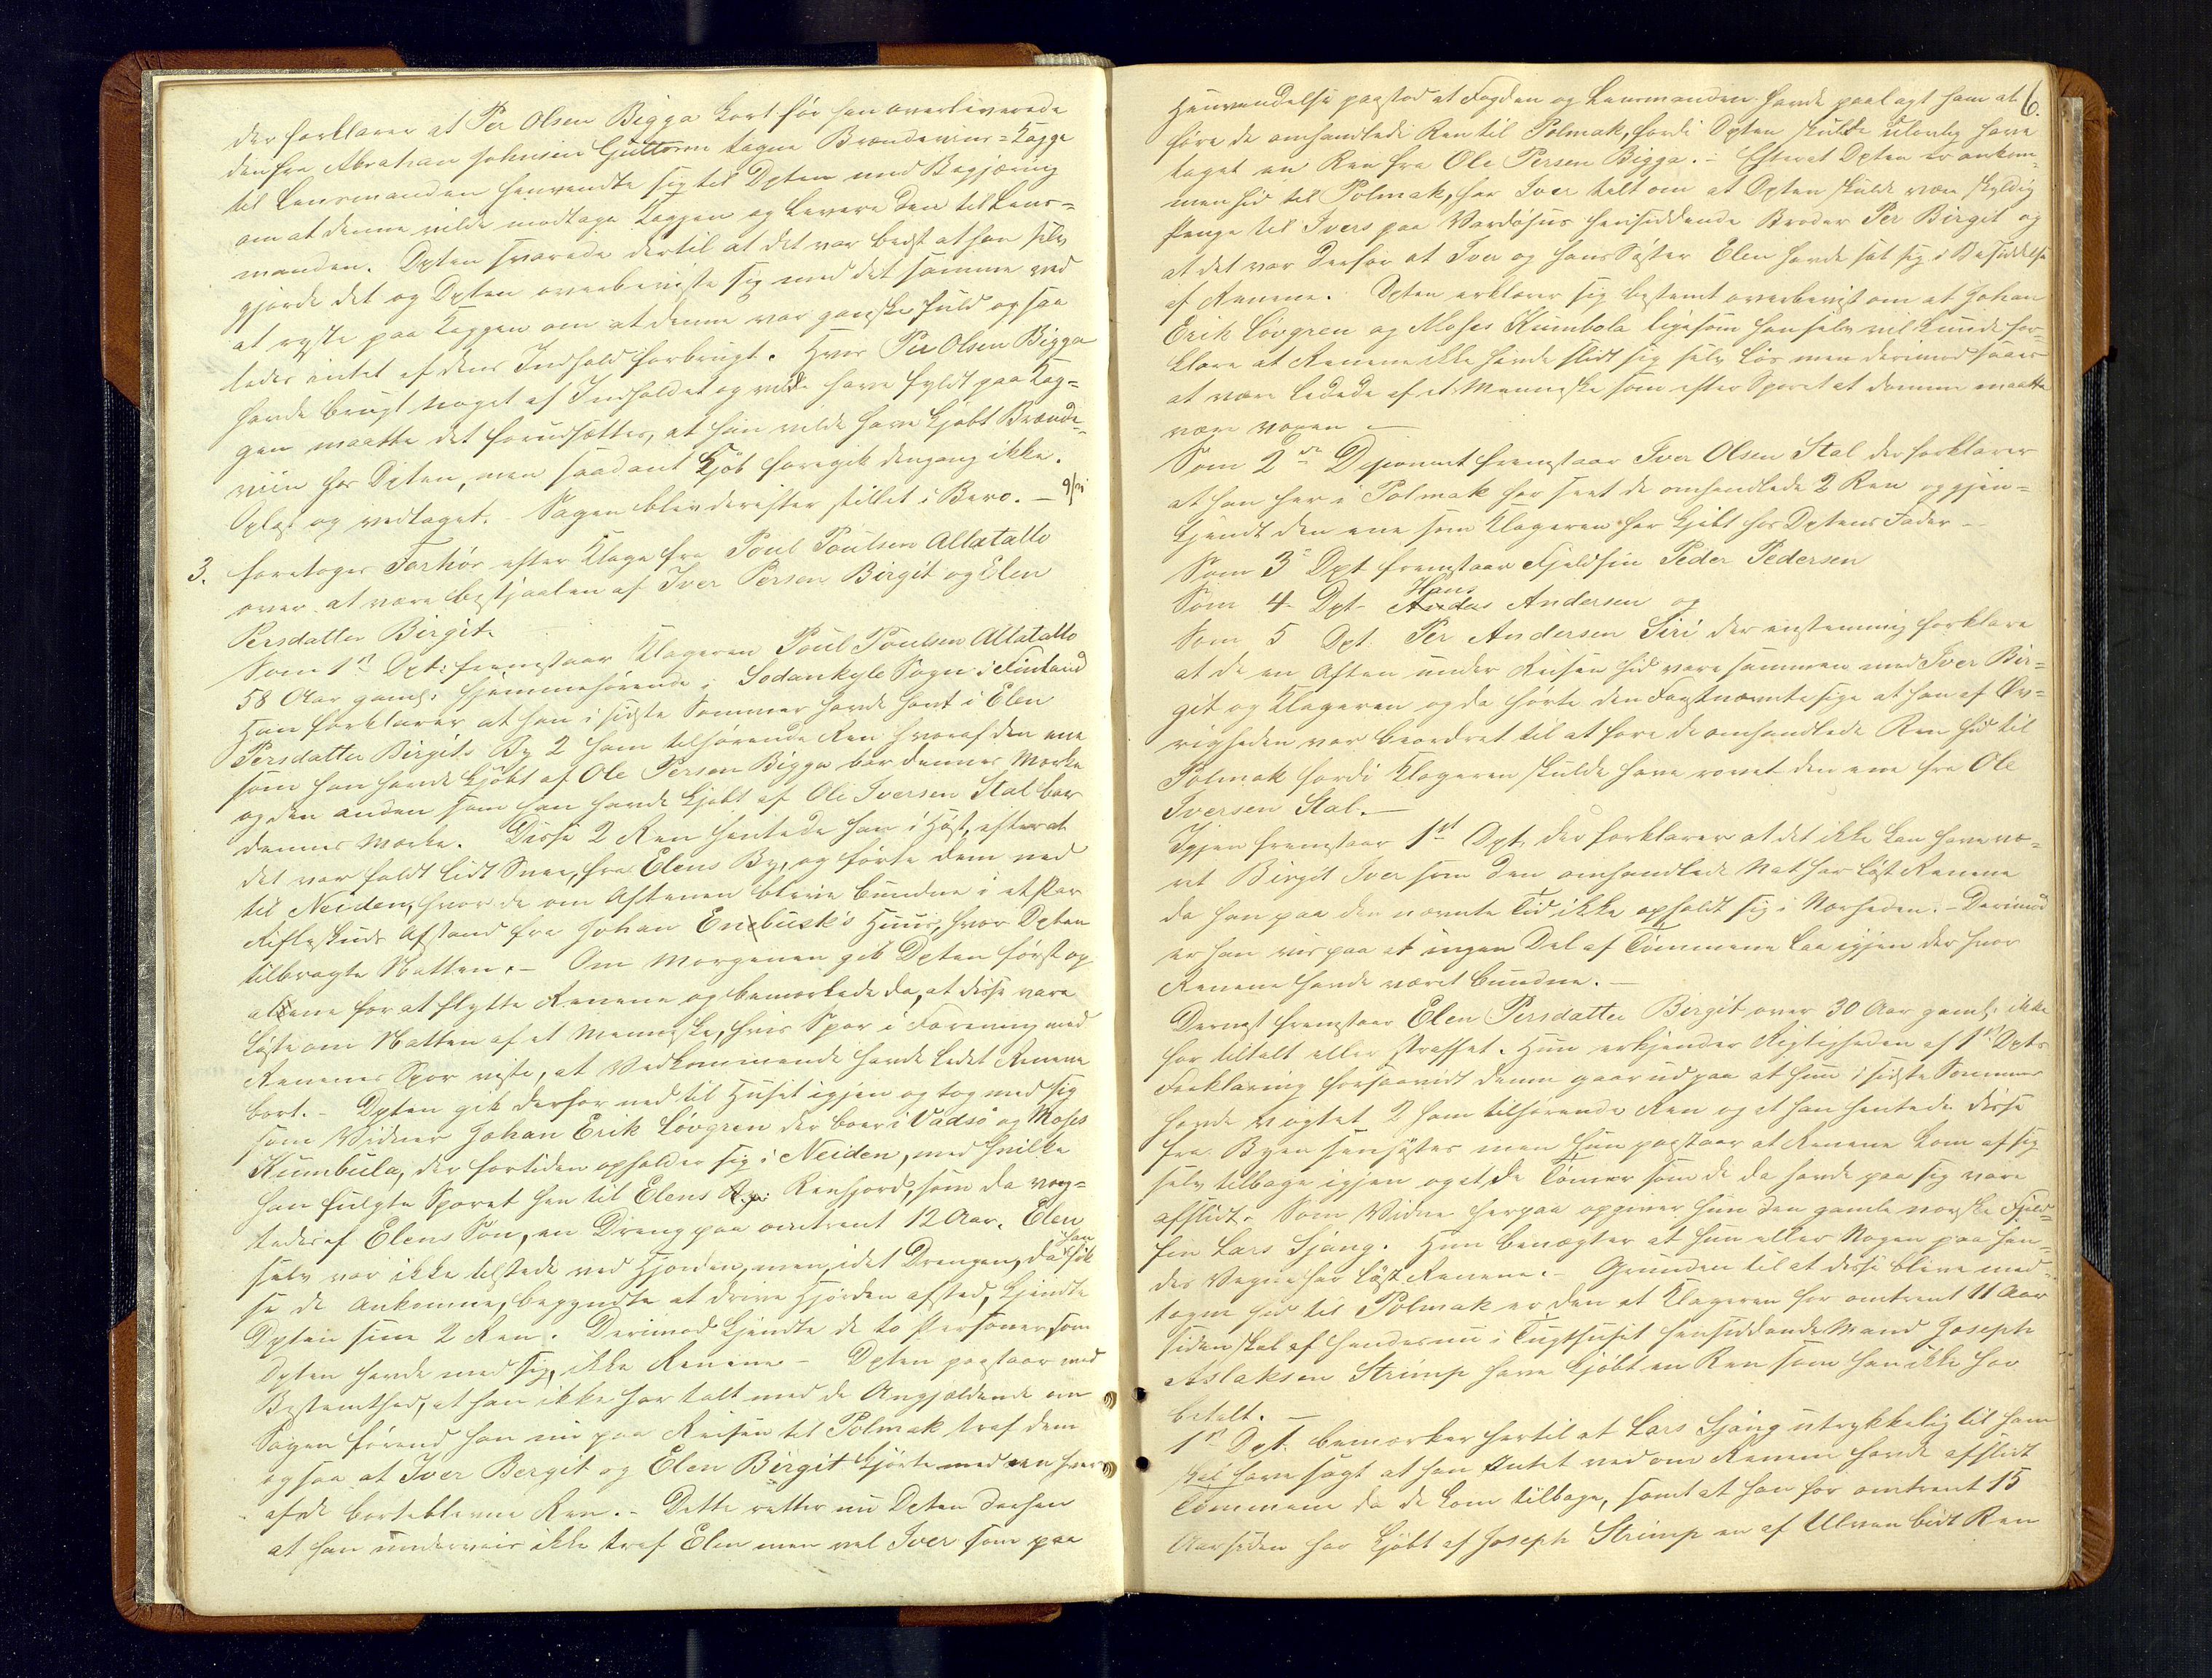 der forklarer at Per Olsen Bigga kort før han overleverede
den fra Abraham Johnsen Guttorm tagne Brændeviins-Kagge
til Lensmanden henvendte sig til Dpten med Begjæring
om at denne vilde modtage Kaggen og levere den til Lens-
manden. Dpten svarede dertil at det var bedst at han selv
gjorde det og Dpten overbeviste sig med det samme ved
at ryste paa Kaggen om at denne var ganske fuld og saa
ledes intet af dens Indhold forbrugt. Hvis Per Olsen Bigga
havde brugt noget af Indholdet og vilde have fyldt paa Kag-
gen maatte det forudsættes, at han vilde have kjøbt Brænde-
viin hos Dpten, men saadant Kjøb foregik dengang ikke.
Oplæst og vedtaget. Sagen blev derefter stillet i Bero. —
3. foretoges Forhør efter Klage fra Poul Poulsen Allatallo
over at være bestjaalen af Iver Persen Birgit og Elen
Persdatter Birgit.
Som 1ste Dpt: fremstaar Klageren Poul Poulsen Allatallo
58 Aar gaml: hjemmehørende i Sodankyle Sogn i Finland
Han forklarer at han i sidste Sommer havde havt i Elen
Persdatter Birgits By 2 ham tilhørende Ren hvoraf den ene
som han havde kjøbt af Ole Persen Bigga bar dennes Mærke
og den anden som han havde kjøbt af Ole Iversen Stal bar
dennes Mærke. Disse 2 Ren hentede han i Høst, efterat
det var faldt lidt Snee, fra Elens By, og førte dem ned
til Neiden, hvor de om Aftenen bleve bundne i et Par
Rifleskuds Afstand fra Johan Enbusk's Huus, hvor Dpten
tilbragte Natten. — Om Morgenen gik Dpten først op
alene for at flytte Renene og bemærkede da, at disse vare
løste om Natten af et Menneske, hvis Spor i Forening med
Renenes Spor viste, at Vedkommende havde ledet Renene
bort. — Dpten gik derfor ned til Huset igjen og tog med sig
som Vidner Johan Erik Løvgren der boer i Vadsø og Moses
Kumbula, der fortiden opholder sig i Neiden, med hvilke
han fulgte Sporet hen til Elens Renhjord, som da vog-
tedes af Elens Søn, en Dreng paa omtrent 12 Aar. Elen
selv var ikke tilstede ved Hjorden, men idet Drengen, da han fik
se de Ankomne, begyndte at drive Hjorden afsted, kjendte
Dpten sine 2 Ren. Derimod kjendte de to Personer, som
Dpten havde med sig, ikke Renene — Dpten paastaar med
Bestemthed, at han ikke har talt med de Angjældende om
Sagen førend han nu paa Reisen til Polmak traf dem
ogsaa at Iver Bergit og Elen Birgit kjørte med een hver
af de bortblevne Ren. — Dette retter nu Dpten derhen
at han underveis ikke traf Elen men vel Iver som paa
6.
Henvendelse paastod at Fogden og Lensmanden havde paalagt ham at
føre de omhandlede Ren til Polmak, fordi Dpten skulde ulovlig have
taget en Ren fra Ole Persen Bigga. — Efterat Dpten er ankom-
men hid til Polmak, har Iver talt om at Dpten skulde være skyldig
Penge til Ivers paa Vardøhus hensiddende Broder Per Birgit og
at det var derfor at Iver og hans Søster Elen havde sat sig i Besiddelse
af Renene. Dpten erklærer sig bestemt overbevist om at Johan
Erik Løvgren og Moses Kumbola ligesom han selv vil kunde for-
klare at Renene ikke havde slidt sig selv løs men derimod
at være ledede af et Menneske som efter Sporet at dømme maatte
være voxen —
Som 2den Deponent fremstaar Iver Olsen Stal der forklarer
at han her i Polmak har seet de omhandlede 2 Ren og gjen-
kjendt den ene som Klageren har kjøbt hos Dptens Fader —
Som 3de Dpt fremstaar Fjeldfin Peder Pedersen
Som 4de Dpt- Hans Andersen og
Som 5 Dpt. Per Andersen Siri der enstemmig forklare
at de en Aften under Reisen hid vare sammen med Iver Bir-
git og Klageren og da hørte den Førstnævnte sige at han af Øv-
righeden var beordret til at føre de omhandlede Ren hid til
Polmak fordi Klageren skulde have røvet den ene fra Ole
Iversen Stal. —
Igjen fremstaar 1ste Dpt, der forklarer at det ikke kan have væ-
ret Birgit Iver som den omhandlede Nat har løst Renene
da han paa den nævnte Tid ikke opholdt sig i Nærheden. — Derimod
er han vis paa at ingen Del af Tømmene laa igjen der hvor
Renene havde været bundne. —
Dernæst fremstaar Elen Persdatter Birgit over 30 Aar gaml: ikke
før tiltalt eller straffet. Hun erkjender Rigtigheden af 1ste Dpts
Forklaring forsaavidt denne gaar ud paa at hun i sidste Sommer
havde vogtet 2 ham tilhørende Ren og at han hentede disse
fra Byen senhøstes men hun paastaar at Renene kom af sig
selv tilbage igjen og at de Tømer som de da havde paa sig vare
afslidt. Som Vidne herpaa opgiver hun den gamle norske Fjeld-
fin Lars Sjang. Hun benægter at hun eller Nogen paa hen-
des Vegne har løst Renene. — Grunden til at disse bleve med-
tagne hid til Polmak er den at Klageren for omtrent 11 Aar
siden skal af hendes nu i Tugthuset hensiddende Mand Joseph
Aslaksen Strimp have kjøbt en Ren som han ikke har
betalt. —
1ste Dpt. bemærker hertil at Lars Sjang udtrykkelig til ham
skal have sagt at han Intet ved om Renene havde afslidt
Tømmene da de kom tilbage, samt at han for omtrent 15
Aar siden har kjøbt af Joseph Strimp en af Ulven bidt Ren